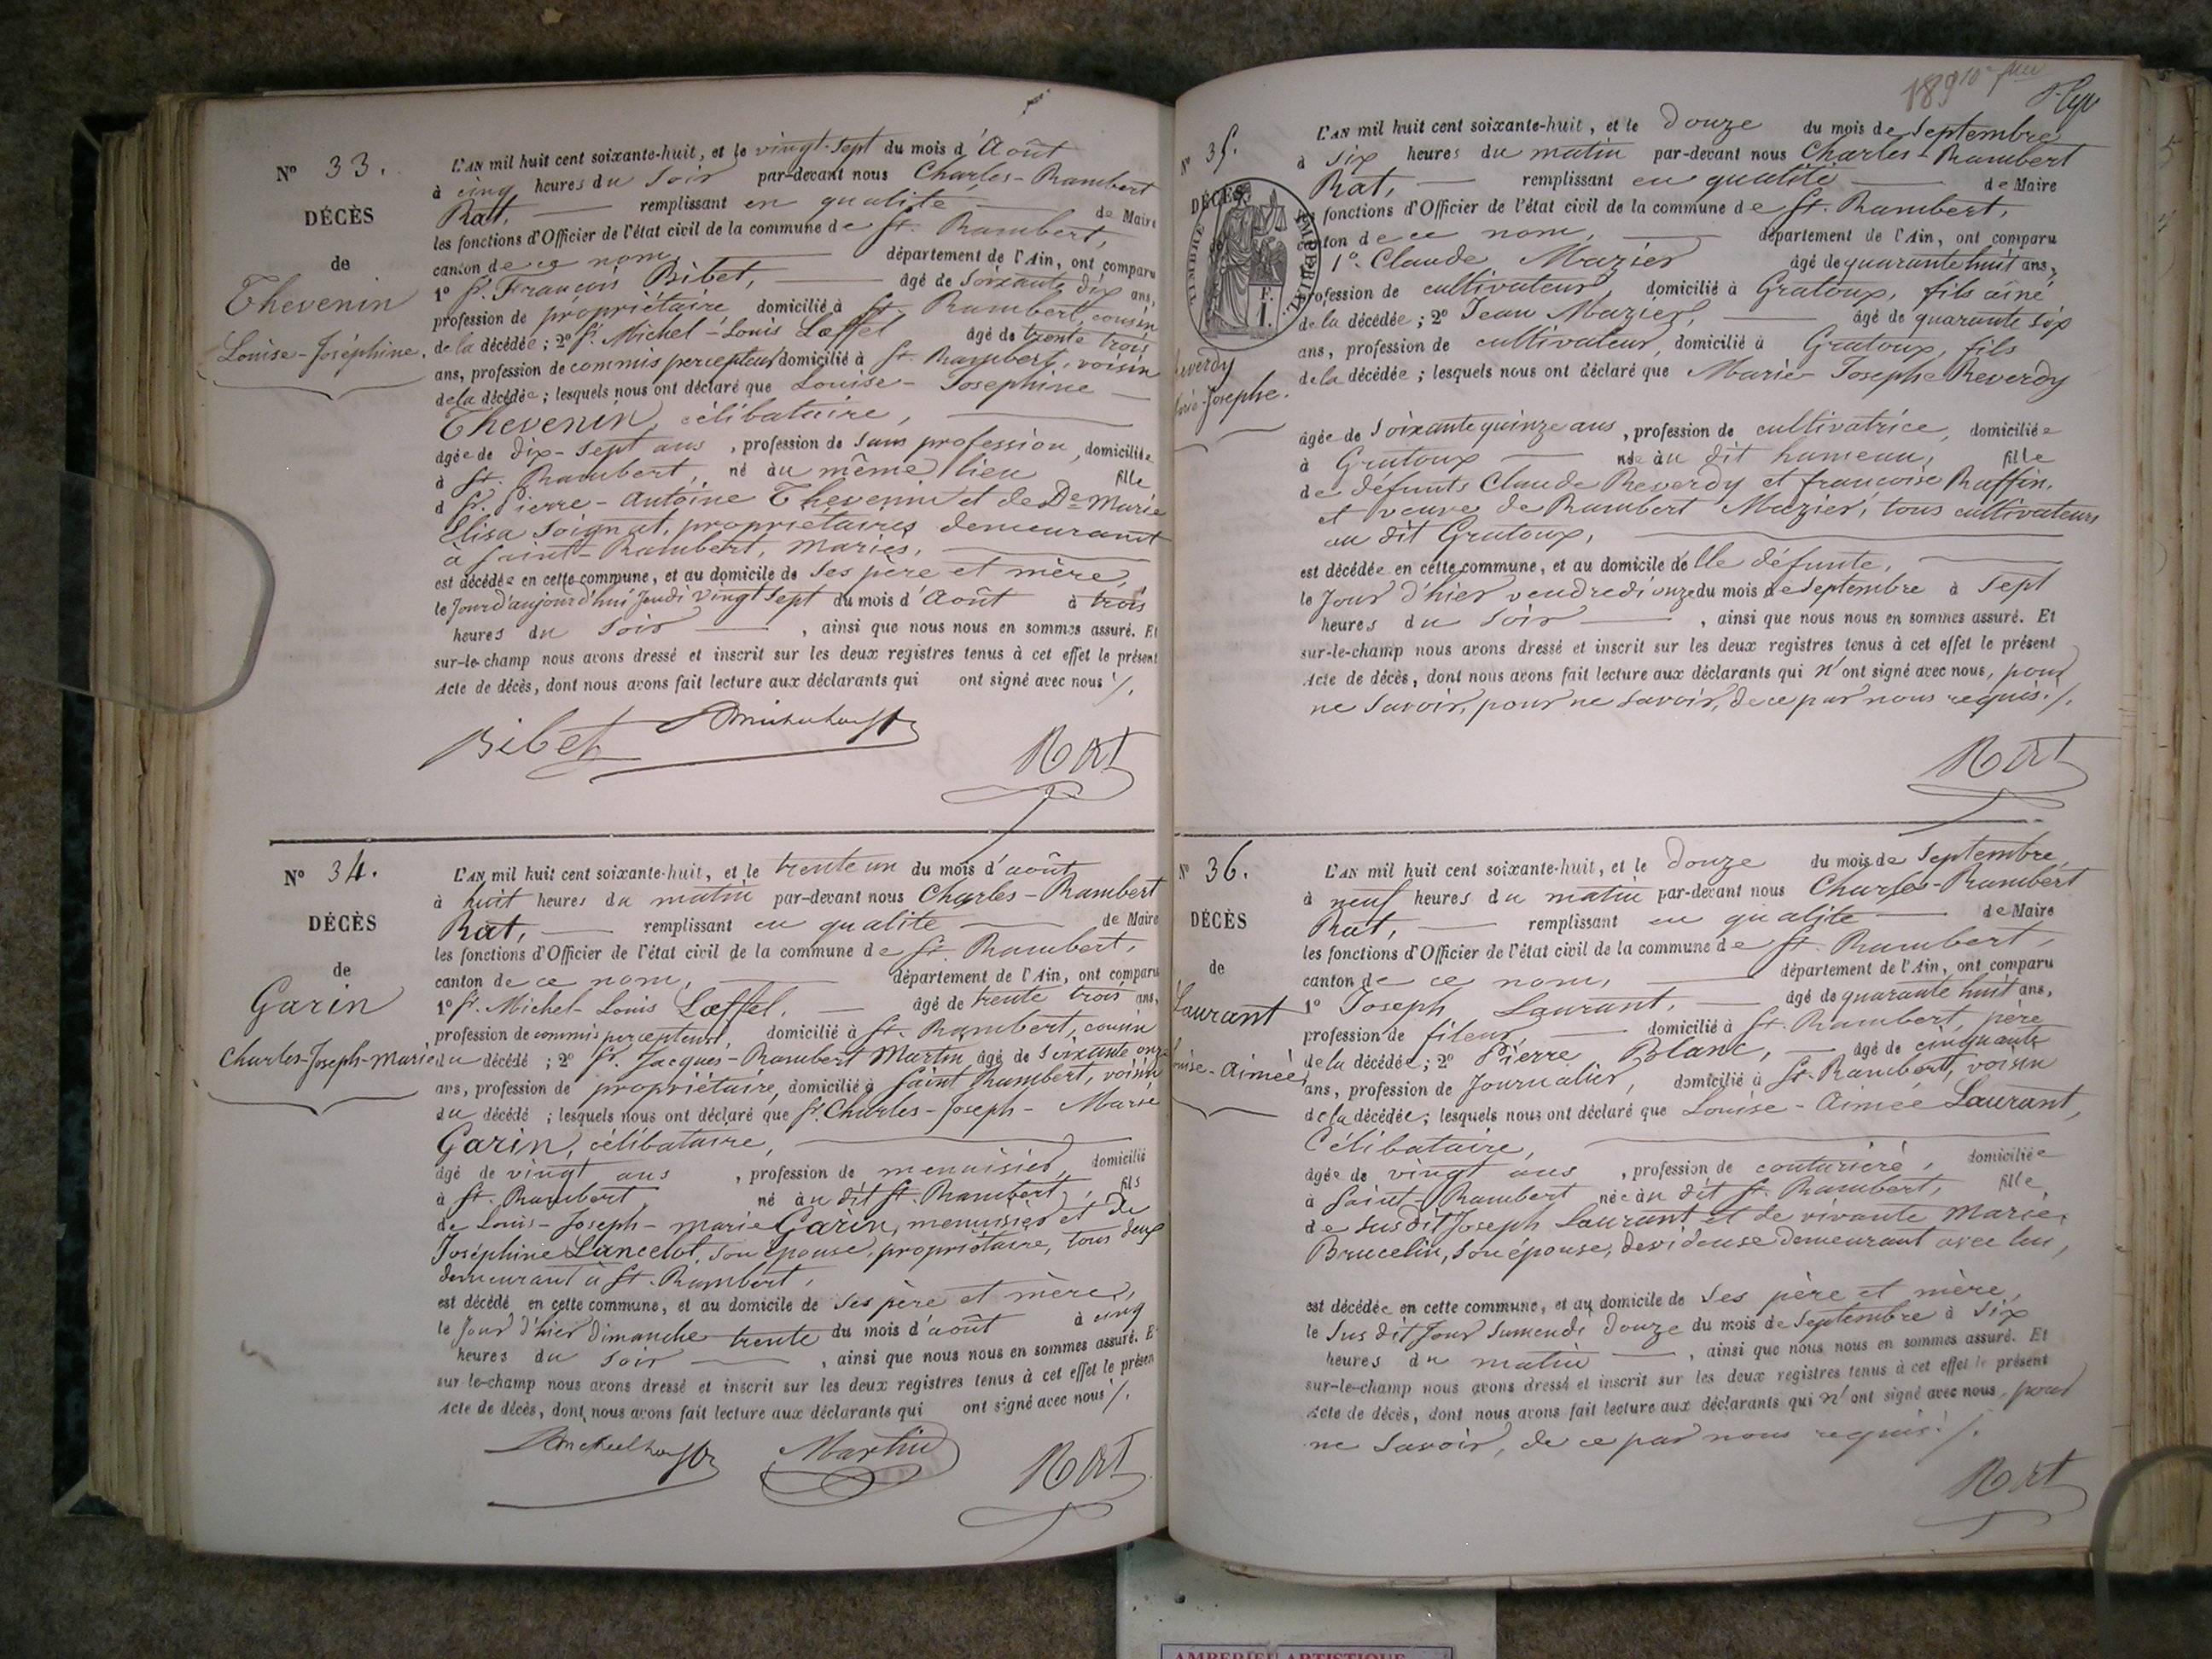 N° 33.
DÉCÈS
de
Thevenin
Louise-Joséphine.
L'AN mil huit cent soixante-huit, et le vingt-sept du mois d'Août
à cinq heures du soir par-devant nous Charles-Rambert
Rat, remplissant en qualité de Maire
les fonctions d'Officier de l'état civil de la commune de St. Rambert,
canton de ce nom, département de l'Ain, ont comparu
1° Sr. François Bibet, âgé de soixante dix ans,
profession de propriétaire domicilié à St. Rambert, cousin
de la décédée ; 2° Sr. Michel-Louis Lœffel âgé de trente trois
ans, profession de commis percepteur domicilié à St. Rambert, voisin
de la décédée ; lesquels nous ont déclaré que Louise-Josephine
Thevenin, célibataire,
agée de dix-sept ans, profession de sans profession, domiciliée
à St. Rambert, né au même lieu fille
d Sr. Pierre-Antoine Thevenin et de De Marie
Elisa Soignat, propriétaires demeurant
à Saint-Rambert, mariés,
est décédée en cette commune, et au domicile de ses père et mère,
le jour d'aujourd'hui jeudi vingt sept du mois d'Août à trois
heures du soir, ainsi que nous nous en sommes assuré. Et
sur-le-champ nous avons dressé et inscrit sur les deux registres tenus à cet effet le présent
Acte de décès, dont nous avons fait lecture aux déclarants qui ont signé avec nous ./.
Bibet Rat
N° 34.
DÉCÈS
de
Garin
Charles-Joseph-Marie
L'AN mil huit cent soixante-huit, et le trente un du mois d'août
à huit heures du matin par-devant nous Charles-Rambert
Rat, remplissant en qualité de Maire
les fonctions d'Officier de l'état civil de la commune de St. Rambert,
canton de ce nom, département de l'Ain, ont comparu
1° Sr. Michel-Louis Lœffel, âgé de trente trois ans,
profession de commis percepteur, domicilié à St. Rambert, cousin
du décédé ; 2° Sr. Jacques-Rambert Martin, âgé de soixante onze
ans, profession de propriétaire, domicilié à Saint Rambert, voisin
du décédé ; lesquels nous ont déclaré que Sr. Charles-Joseph-Marie
Garin, célibataire,
âgé de vingt ans, profession de menuisier, domicilié
à St. Rambert né au dit St. Rambert, fils
de Louis-Joseph-Marie Garin, menuisier et de
Joséphine Lancelot, son épouse, propriétaire, tous deux
demeurant à St. Rambert,
est décédé en cette commune, et au domicile de ses père et mère,
le jour d'hier dimanche trente du mois d'août à cinq
heures du soir, ainsi que nous nous en sommes assuré. Et
sur-le-champ nous avons dressé et inscrit sur les deux registres tenus à cet effet le présent
Acte de décès, dont nous avons fait lecture aux déclarants qui ont signé avec nous ./.
Martin Rat
189
N° 35.
DÉCÈS
TIMBRE IMPÉRIAL
F.
1.
Reverdy
Marie-Josephe.
L'AN mil huit cent soixante-huit, et le douze du mois de Septembre
à six heures du matin par-devant nous Charles-Rambert
Rat, remplissant en qualité de Maire
les fonctions d'Officier de l'état civil de la commune de St. Rambert,
canton de ce nom, département de l'Ain, ont comparu
1° Claude Mazier âgé de quarante huit ans,
profession de cultivateur, domicilié à Gratoux, fils aîné
de la décédée ; 2° Jean Mazier, âgé de quarante six
ans, profession de cultivateur, domicilié à Gratoux, fils
de la décédée ; lesquels nous ont déclaré que Marie-Josephe Reverdy
âgée de soixante quinze ans, profession de cultivatrice, domiciliée
à Gratoux née au dit hameau, fille
de défunts Claude Reverdy et francoise Ruffin,
et veuve de Rambert Mazier, tous cultivateurs
au dit Gratoux,
est décédée en cette commune, et au domicile de lle défunte,
le jour d'hier vendredi onze du mois de Septembre à sept
heures du soir, ainsi que nous nous en sommes assuré. Et
sur-le-champ nous avons dressé et inscrit sur les deux registres tenus à cet effet le présent
Acte de décès, dont nous avons fait lecture aux déclarants qui n'ont signé avec nous, pour
ne savoir, pour ne savoir, de ce par nous requis ./.
Rat
N° 36.
DÉCÈS
de
Laurant
Louise-Aimée
L'AN mil huit cent soixante-huit, et le douze du mois de Septembre
à neuf heures du matin par-devant nous Charles-Rambert
Rat, remplissant en qualité de Maire
les fonctions d'Officier de l'état civil de la commune de St. Rambert,
canton de ce nom, département de l'Ain, ont comparu
1° Joseph Laurant, âgé de quarante huit ans,
profession de fileur, domicilié à St. Rambert, père
de la décédée ; 2° Pierre Blanc, âgé de cinquante
ans, profession de journalier, domicilié à St. Rambert, voisin
de la décédée ; lesquels nous ont déclaré que Louise-Aimée Laurant,
Célibataire,
âgée de vingt ans, profession de couturière, domiciliée
à Saint-Rambert née au dit St. Rambert, fille
de sus dit Joseph Laurant et de vivante Marie
Brucelin, son épouse, devideuse demeurant avec lui,
est décédée en cette commune, et au domicile de ses père et mère,
le sus dit jour samendi douze du mois de Septembre à six
heures du matin, ainsi que nous nous en sommes assuré. Et
sur-le-champ nous avons dressé et inscrit sur les deux registres tenus à cet effet le présent
Acte de décès, dont nous avons fait lecture aux déclarants qui n'ont signé avec nous, pour
ne savoir, de ce par nous requis ./.
Rat
AMBERIEU ARTISTIQUE